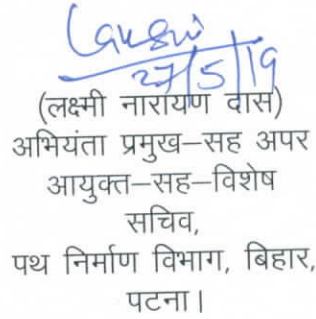 27/5/19
(लक्ष्मी नारायण दास)
अभियंता प्रमुख–सह अपर
आयुक्त–सह–विशेष
सचिव,
पथ निर्माण विभाग, बिहार,
पटना।